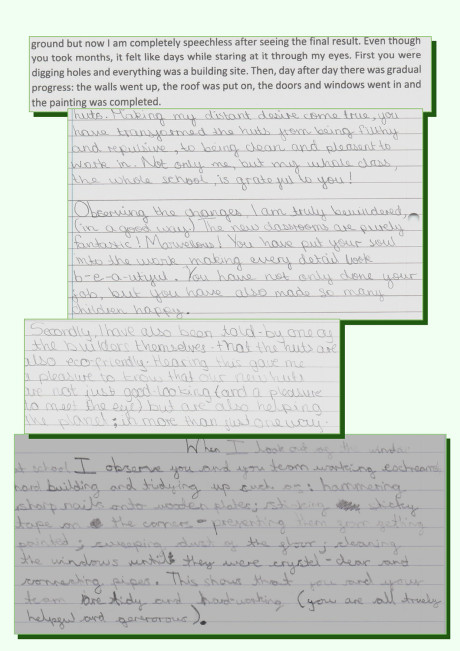 ground but now I am completely speechless after seeing the final result. Even though
you took months, it felt like days while staring at it through my eyes. First you were
digging holes and everything was a building site. Then, day after day there was gradual
progress: the walls went up, the roof was put on, the doors and windows went in and
the painting was completed.
huts. Making my distant desire come true, you
have transformed the huts from being filthy
and repulsive, to being clean and pleasent to
work in. Not only me, but my whole class,
the whole school, is grateful to you!
Observing the changes, I am truly bewildered,
(in a good way) The new classrooms are purely
fantastic! Marvellous! You have put your soul
into the work making every detail look
b-e-a-utyful. You have not only done your
job, but you have also made so many
children happy.
Secondly, I have also been told-by one of
the builders themselves-that the huts are
also eco-friendly. Hearing this gave me
a pleasure to know that our new huts
are not just good looking (and a pleasure
to meet the eye) but are also helping
the planet; in more than just one way.
When I look out of the window
at school I observe you and you team working
hard building and tidying up such as: hammering
sharp nails onto wooden plates; sticking sticky
tape on the corners - preventing them from getting
painted; sweeping dust of the floor; cleaning
the windows until they were crystal-clear and
connecting pipes. This shows that you and your
team are tidy and hard-working (you are all truely
helpful and generorous).